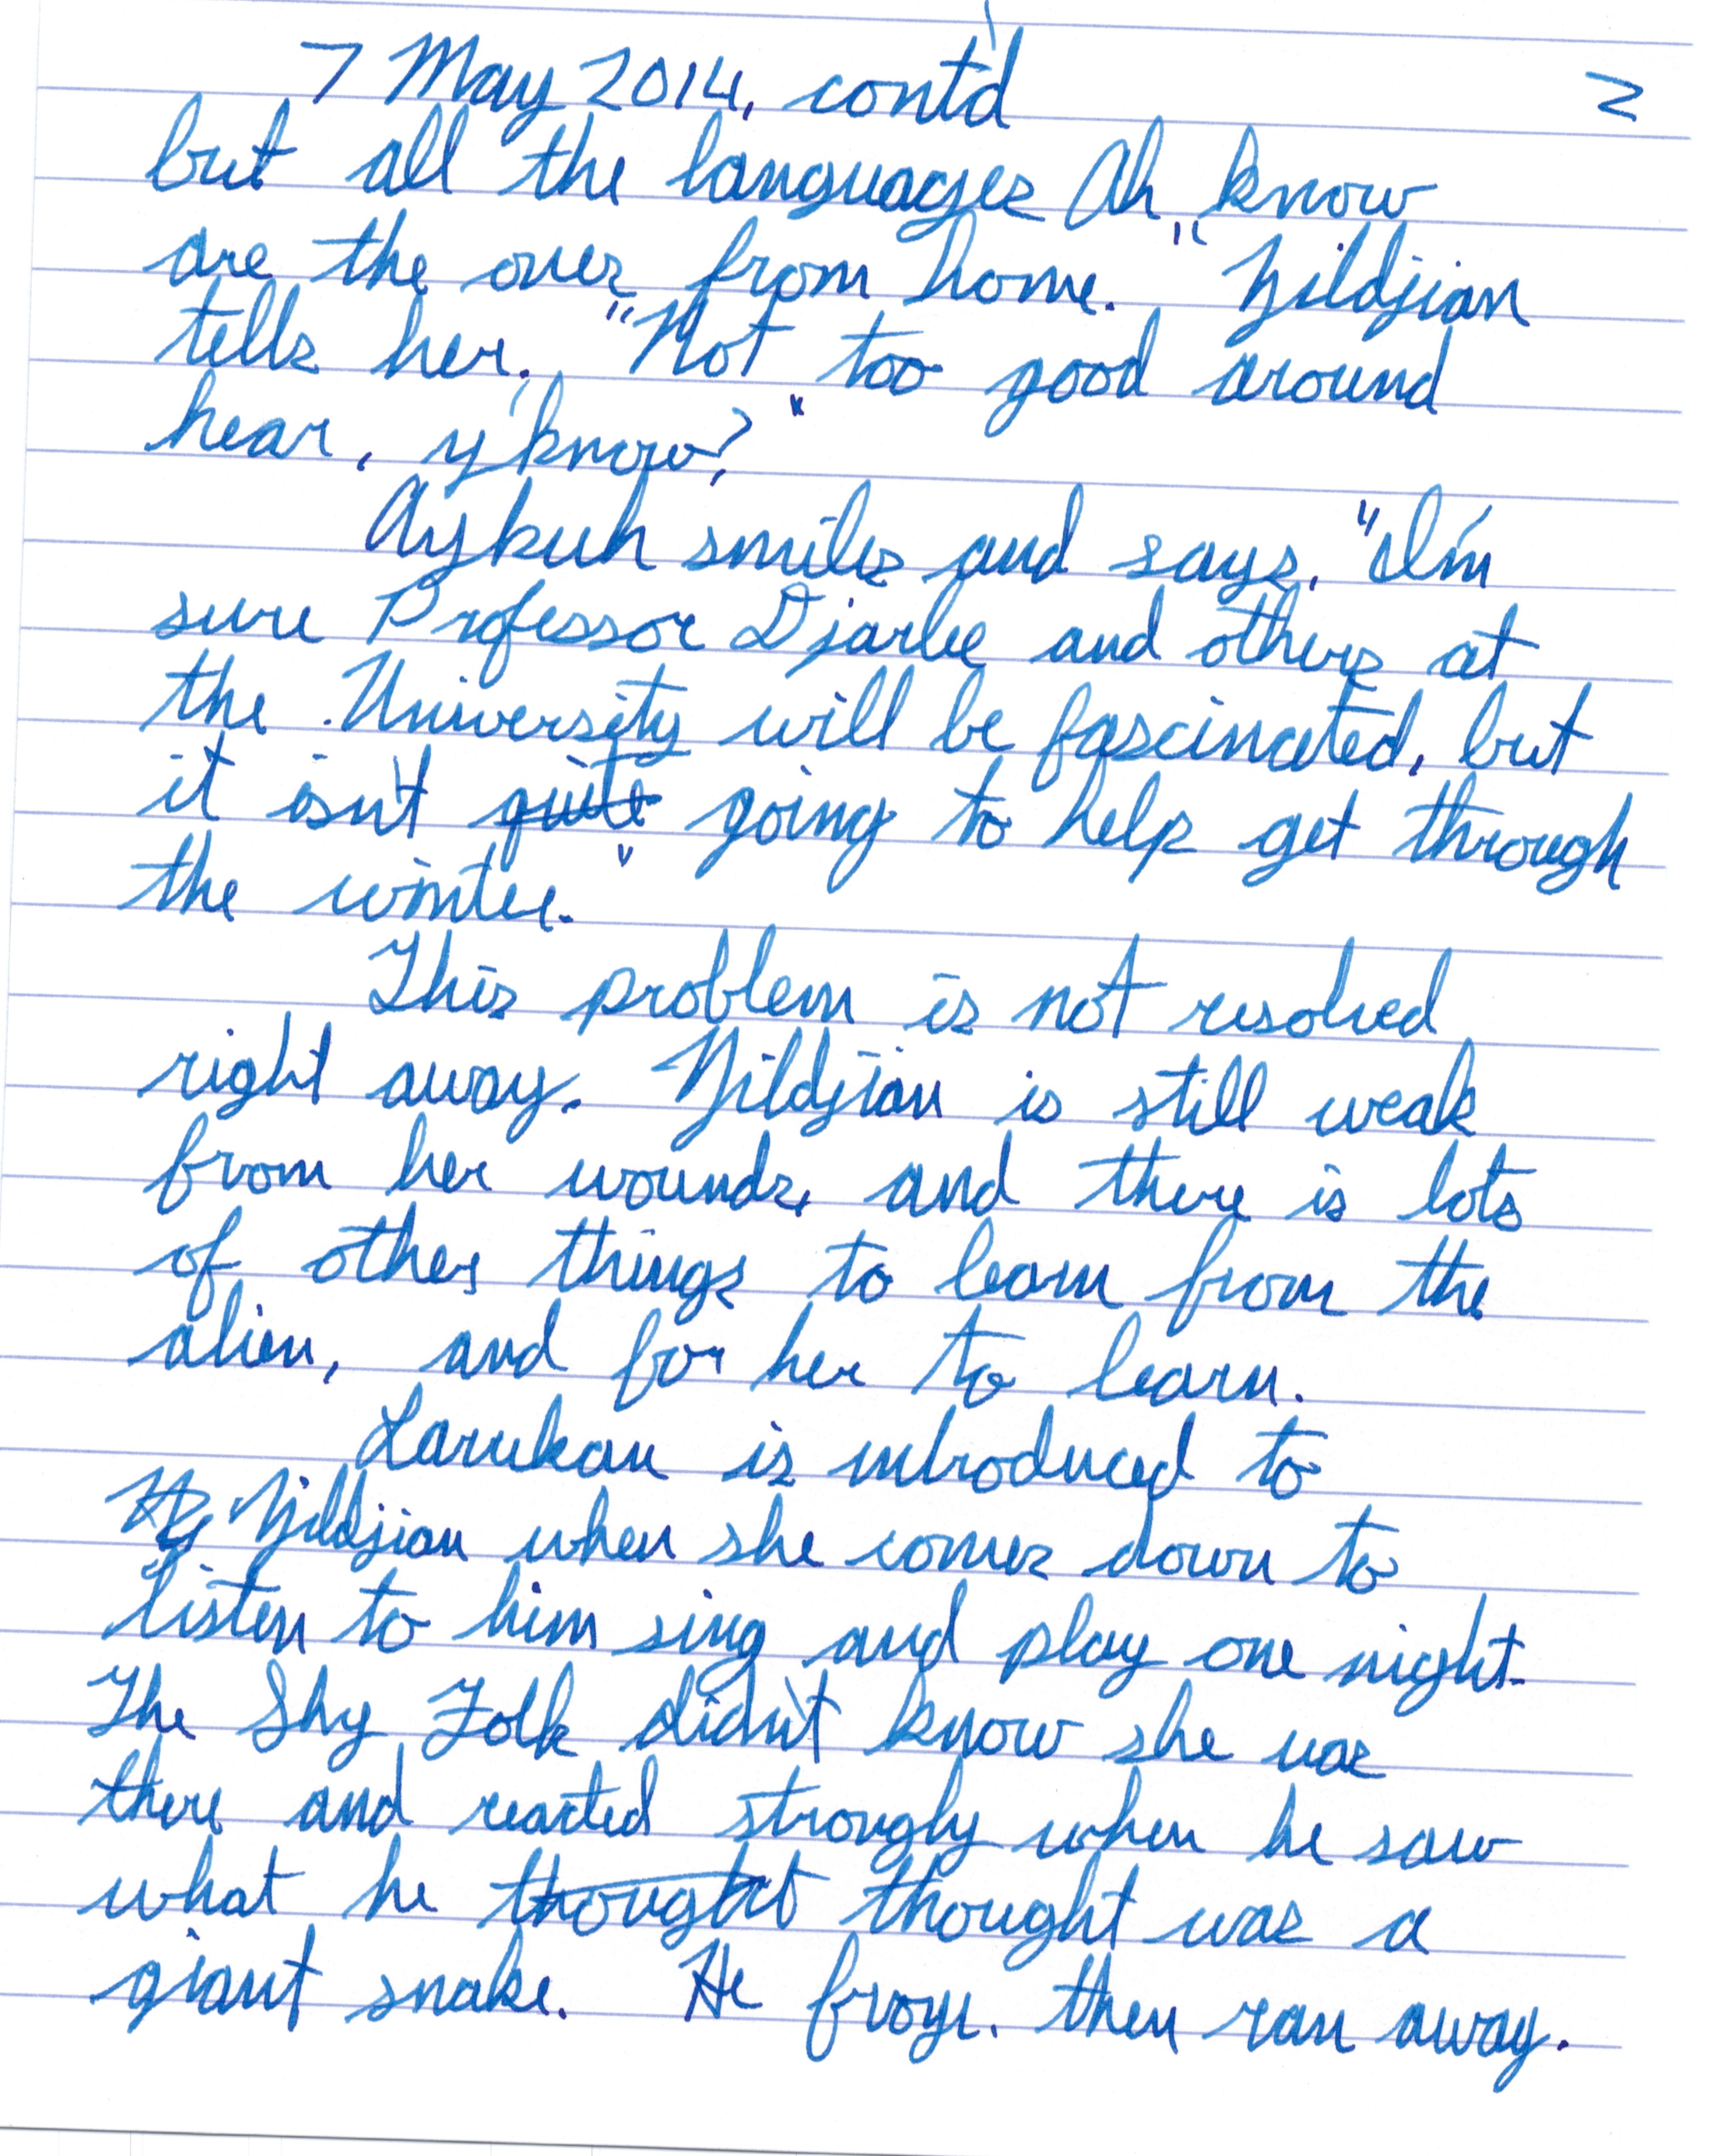 7 May 2014, cont'd 2
but all the languages Ah know
are the ones from home." Zildjian
tells her. "Not too good around
hear, y'know?"
Aykuh smiles and says, "I'm
sure Professor Djarlie and others at
the University will be fascinated, but
it isn't quite going to help get through
the winter."
This problem is not resolved
right away. Zildjian is still weak
from her wounds, and there is lots
of other things to learn from the
alien, and for her to learn.
Larukan is introduced to
Zildjian when she comes down to
listen to him sing and play one night.
The Shy Folk didn't know she was
there and reacted strongly when he saw
what he thought thought was a
giant snake. He froze, then ran away.